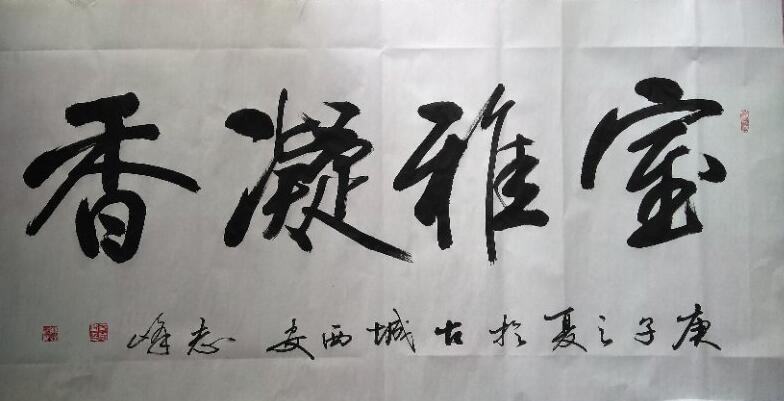 室雅凝香
庚子之夏於古城西安 志峰